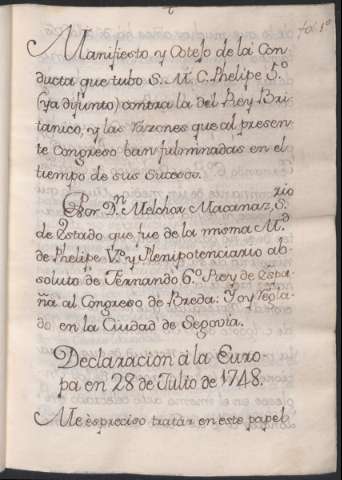 fol. 1º
Manifiesto y Cotejo de la Con
ducta que tubo S. M. C. Phelipe 5.º
(ya difunto) contra la del Rey Bri
tanico, y las razones que al presen
te Congreso han fulminadas en el
tiempo de sus sucesos.
Por D.n Melchor Macanaz, S.rio
de Estado que fue de la misma M.d
de Phelipe V.º y Plenipotenciario ab
soluto de Fernando 6.º Rey de Espa
ña al Congreso de Breda: Yoy
do en la Ciudad de Segovia.
Declaracion á la Euro
pa en 28 de Julio de 1748.
Me es preciso tratar en este papel